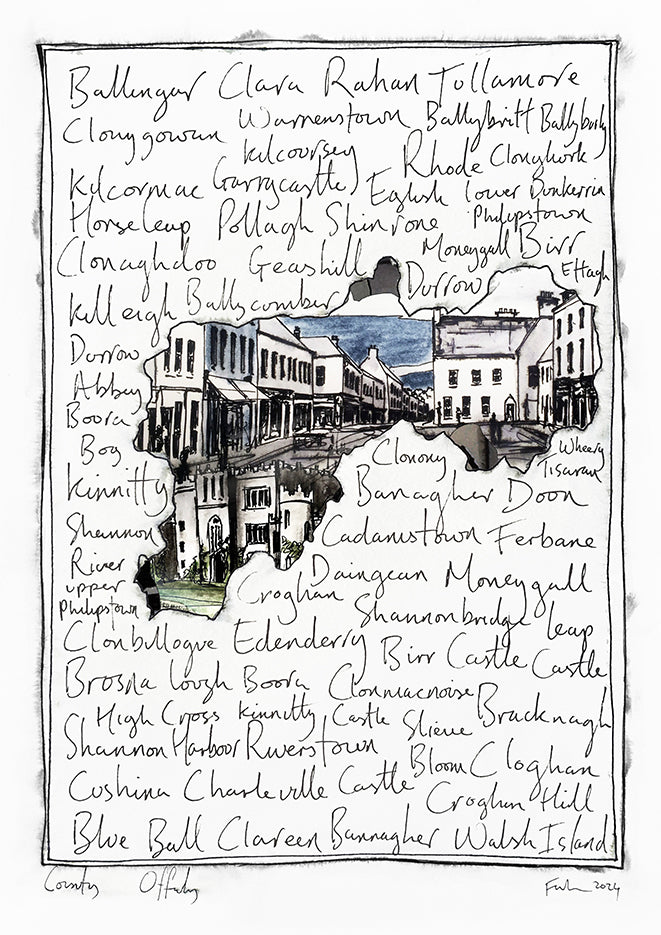 Ballingar Clara Rahan Tullamore
Cloneygowan Warrenstown Ballybritt Ballyburly
Kilcoursey Rhode Clonyhork
Kilcormac Garrycastle Eglish Lower Dunkerrin
Horseleap Pollagh Shinrone Philipstown
Clonaghdoo Geashill Moneygall Birr
Durrow Ettagh
Killeigh Ballycomber
Durrow
Abbey
Boora
Bog
Clonony Wheery
Tisaran
Kinnitty Banagher Doon
Shannon Cadamstown Ferbane
River
Upper
Philipstown
Croghan Daingean Moneygall
Shannonbridge Leap
Clonbullogue Edenderry Birr Castle Castle
Brosna Lough Boora Clonmacnoise
High Cross Kinnitty Castle Slieve Bracknagh
Shannon Harbour Riverstown Bloom Cloghan
Cushina Charleville Castle Croghan Hill
Blue Ball Clareen Bannagher Walsh Island
County Offaly 2024